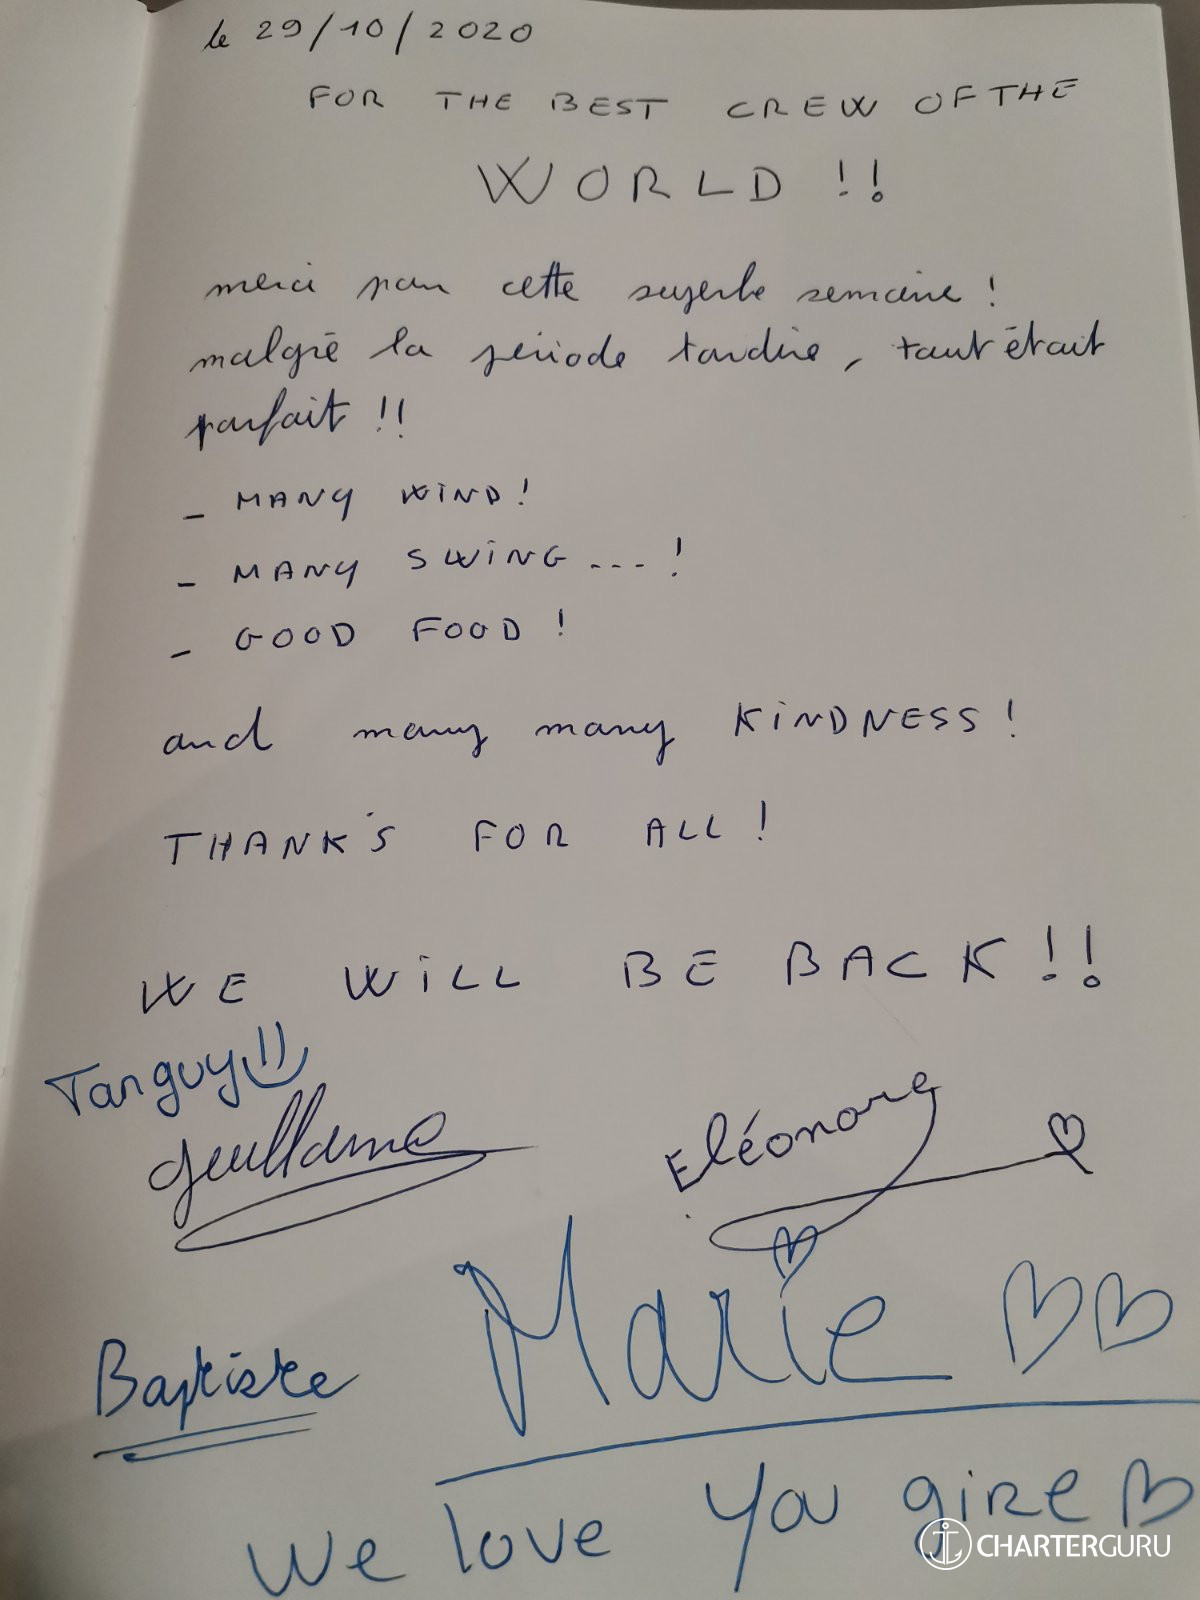 le 29/10/2020
FOR THE BEST CREW OF THE
WORLD !!
merci pour cette superbe semaine !
malgré la période tardive, tout était
parfait !!
- MANY WIND !
- MANY SWING ... !
- GOOD FOOD !
and many many KINDNESS !
THANK'S FOR ALL !
WE WILL BE BACK !!
Tanguy
Guillaume
Eléonore
Marie
Baptiste
We love you gire
CHARTERGURU